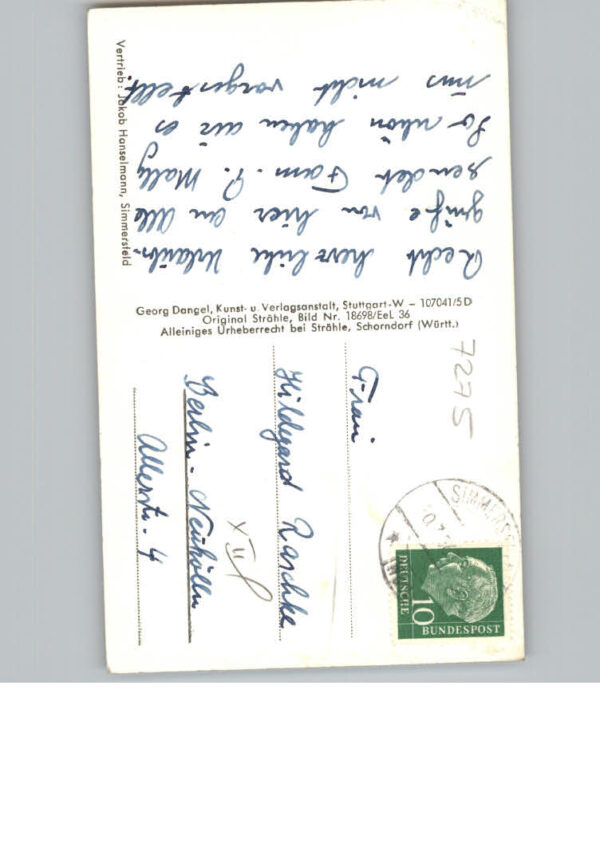 Recht herzliche Urlaubs-
grüße von hier an Alle
sendet Fam. P. Mally
So schön haben wir es
uns nicht vorgestellt.
Vertrieb: Jakob Hanselmann, Simmersfeld
Georg Dangel, Kunst- u. Verlagsanstalt, Stuttgart-W – 107041/5 D
Original Strähle, Bild Nr. 18698/EeL 36
Alleiniges Urheberrecht bei Strähle, Schorndorf (Württ.)
7275
Frau
Hildegard Raschke
Berlin-Neukölln
Allerstr. 4
SIMMERS
10
DEUTSCHE
BUNDESPOST